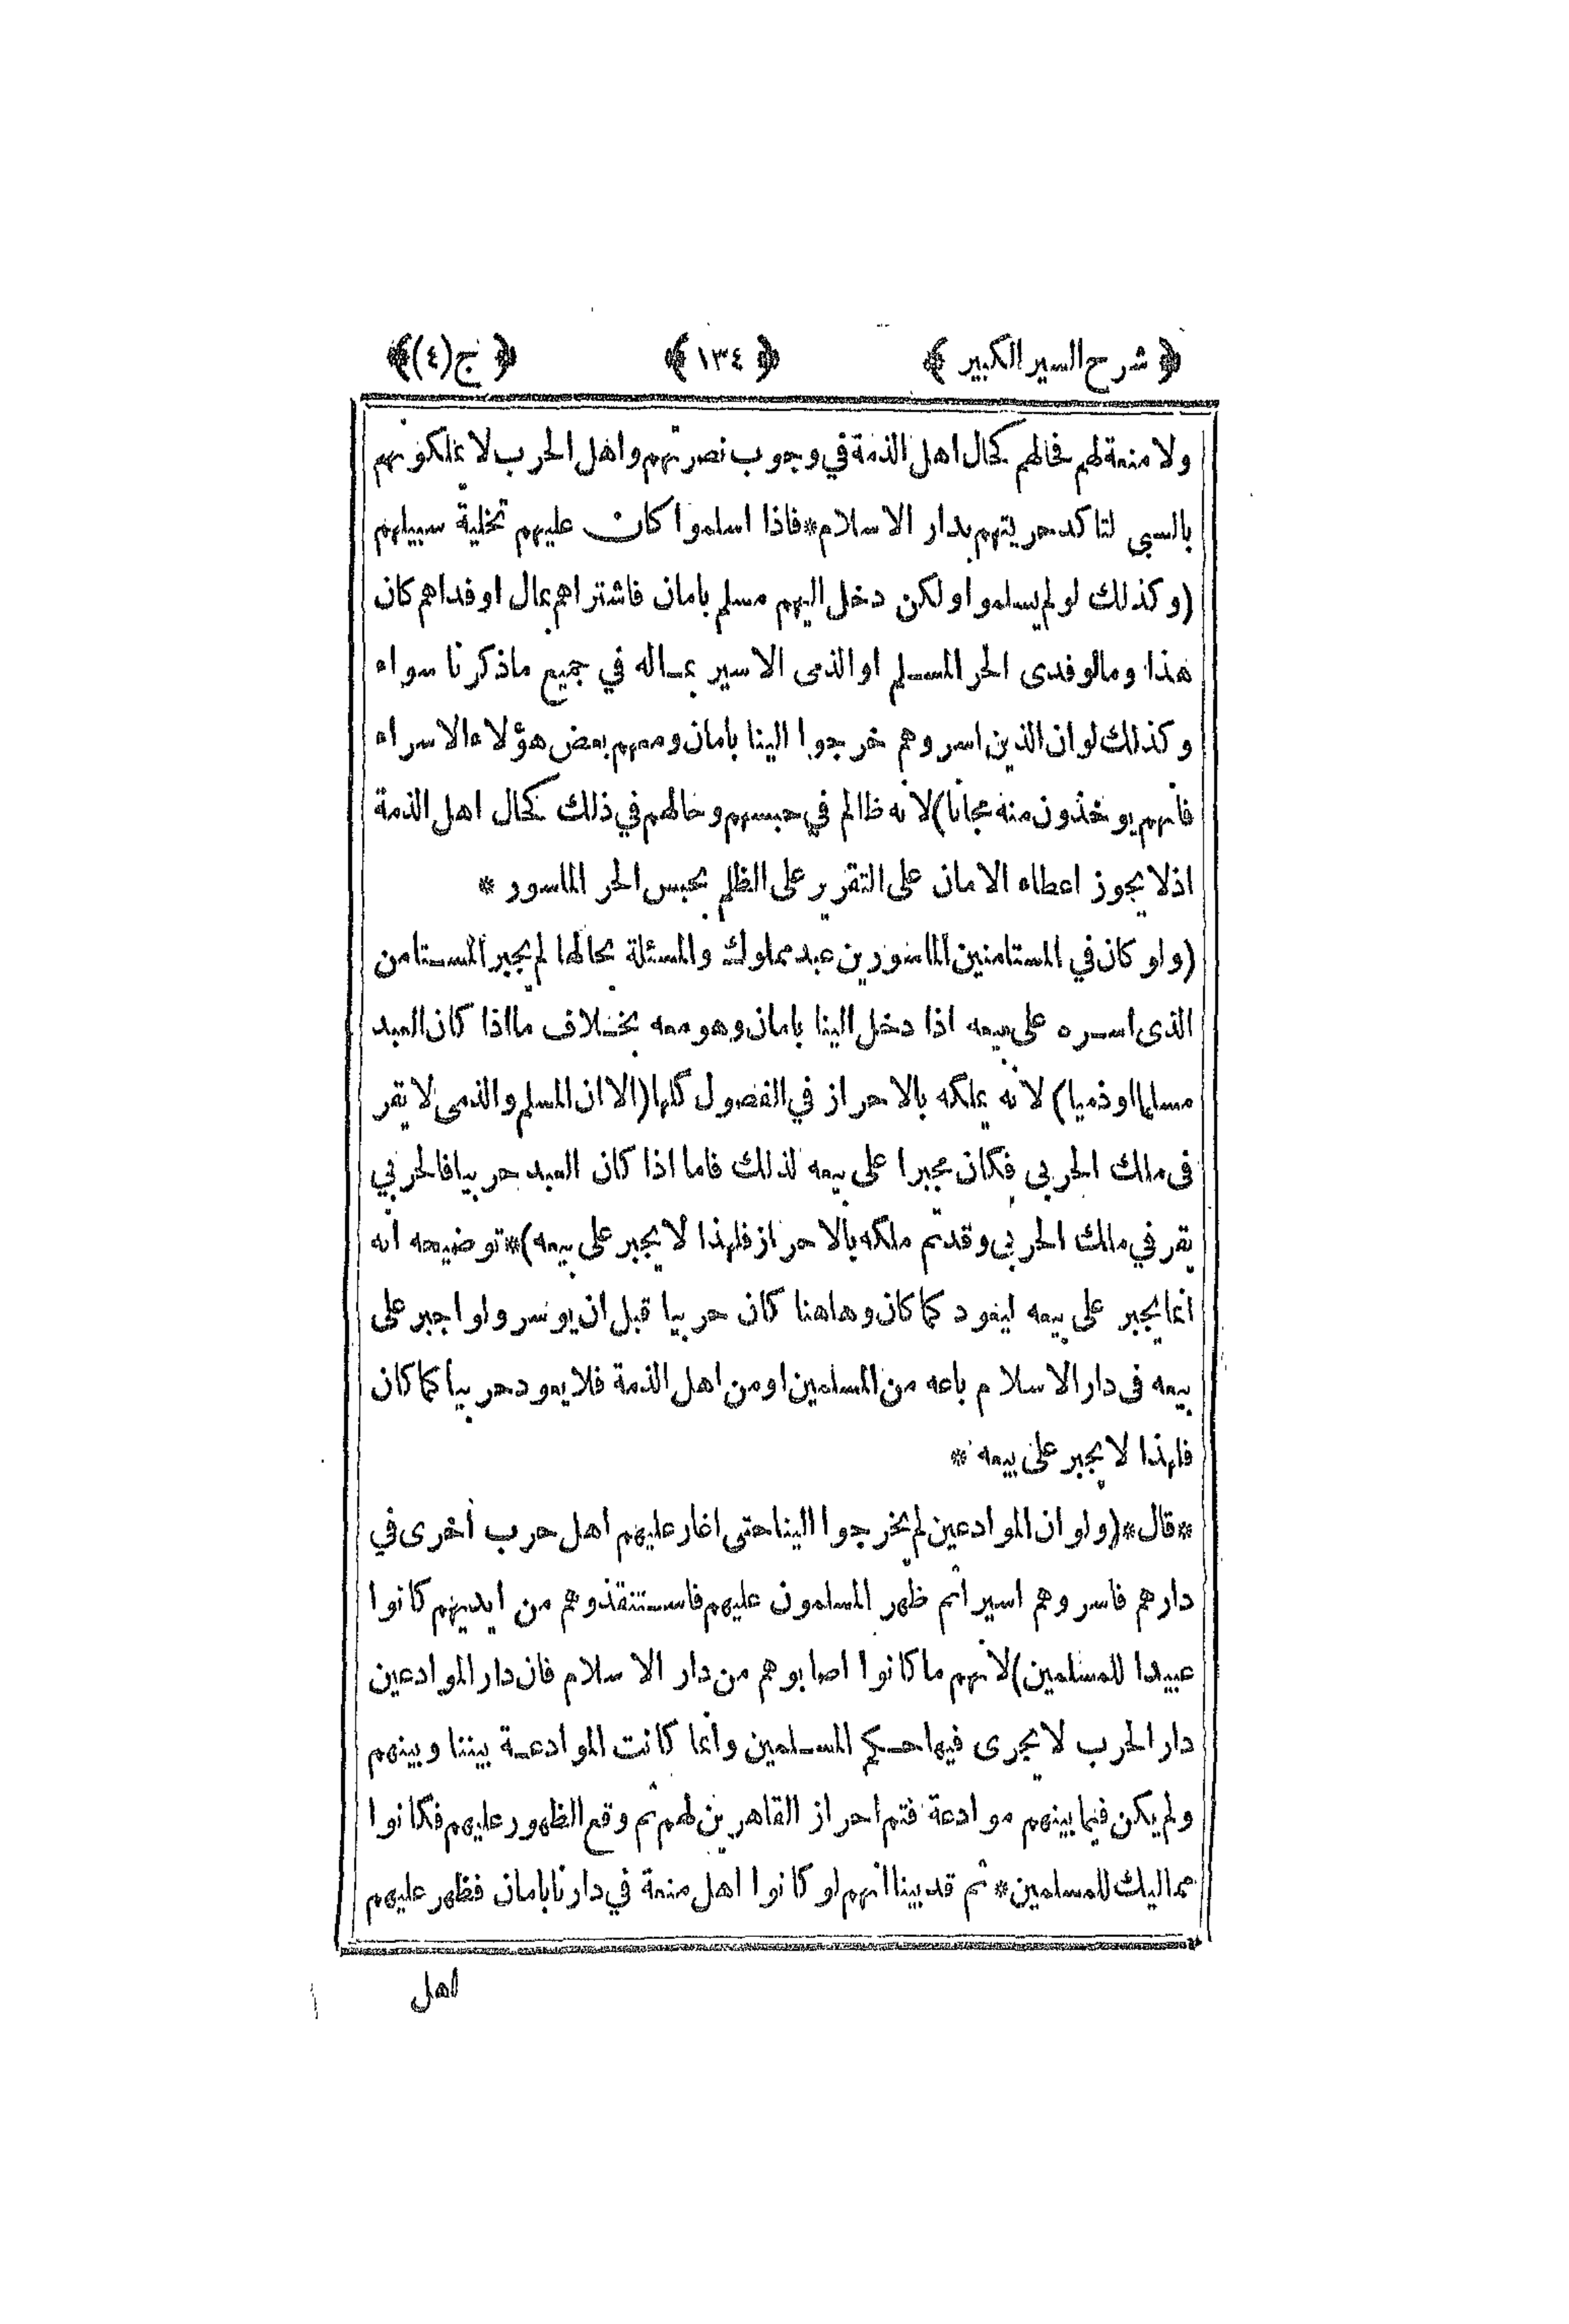 ﴿ شرح السير الكبير ﴾ ﴿ ١٣٤ ﴾ ﴿ ج (٤) ﴾
ولا منعة لهم فحالهم كحال اهل الذمة في وجوب نصرتهم واهل الحرب لا يملكونهم
بالسبى لتاكد حريتهم بدار الاسلام * فاذا اسلموا كان عليهم تخلية سبيلهم
(وكذلك لو لم يسلموا ولكن دخل اليهم مسلم بامان فاشتراهم بمال او فداهم كان
هذا وما لو فدى الحر المسلم او الذمى الاسير بماله في جميع ما ذكرنا سواء
وكذلك لو ان الذين اسروهم خرجوا الينا بامان ومعهم بعض هؤلاء الاسراء
فانهم يوخذون منه مجانا) لانه ظالم في حبسهم وحالهم في ذلك كحال اهل الذمة
اذ لا يجوز اعطاء الامان على التقرير على الظلم بحبس الحر الماسور *
(ولو كان في المستامنين الماسورين عبد مملوك والمسئلة بحالها لم يجبر المستامن
الذى اسره على بيعه اذا دخل الينا بامان وهو معه بخلاف ما اذا كان العبد
مسلما او ذميا) لانه يملكه بالاحراز في الفصول كلها (الا ان المسلم والذمى لا تقر
فى ملك الحربى فكان مجبرا على بيعه لذلك فاما اذا كان العبد حربيا فالحربي
يقر في ملك الحربى وقد تم ملكه بالاحراز فلهذا لا يجبر على بيعه) * توضيحه انه
انما يجبر على بيعه ليعود كما كان وهاهنا كان حربيا قبل ان يوسر ولو اجبر على
بيعه فى دار الاسلام باعه من المسلمين او من اهل الذمة فلا يعود حربيا كما كان
فلهذا لا يجبر على بيعه *
* قال * (ولو ان الموادعين لم يخرجوا الينا حتى اغار عليهم اهل حرب أخرى في
دارهم فاسروهم اسيرا ثم ظهر المسلمون عليهم فاستنقذوهم من ايديهم كانوا
عبيدا للمسلمين) لانهم ما كانوا اصابوهم من دار الاسلام فان دار الموادعين
دار الحرب لا يجرى فيها حكم المسلمين وانما كانت الموادعة بيننا وبينهم
ولم يكن فيما بينهم موادعة فتم احراز القاهرين لهم ثم وقع الظهور عليهم فكانوا
مماليك للمسلمين * ثم قد بينا انهم لو كانوا اهل منعة في دارنا بامان فظهر عليهم
اهل